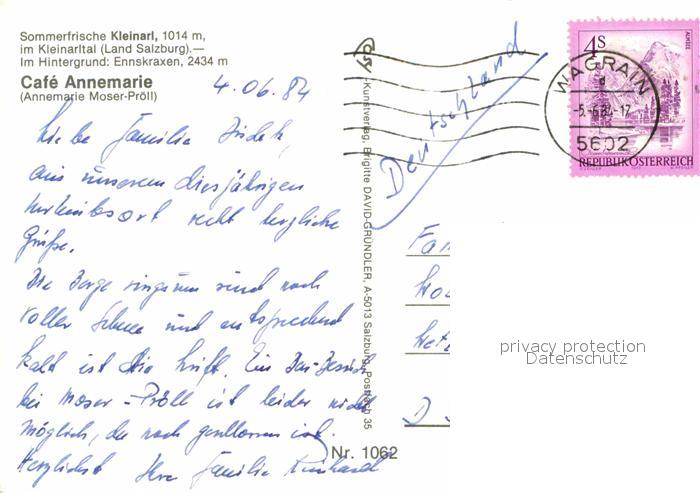 Sommerfrische Kleinarl, 1014 m,
im Kleinarltal (Land Salzburg).—
Im Hintergrund: Ennskraxen, 2434 m
Café Annemarie
(Annemarie Moser-Pröll)
4.06.84
Liebe Familie
aus unserem diesjährigen
Urlaubsort recht herzliche
Grüße.
Die Berge ringsum sind noch
voller Schnee und entsprechend
kalt ist die Luft. Ein Bar-Besuch
bei Moser-Pröll ist leider nicht
möglich, da noch geschlossen ist.
Herzlichst Ihre Familie
Kunstverlag Brigitte DAVID-GRÜNDLER, A-5013 Salzburg, Postfach 35
Nr. 1062
Deutschland
4 S
ALMSEE
REPUBLIK ÖSTERREICH
WAGRAIN
-5.-6.84-17
5602
Fa
D
privacy protection
Datenschutz